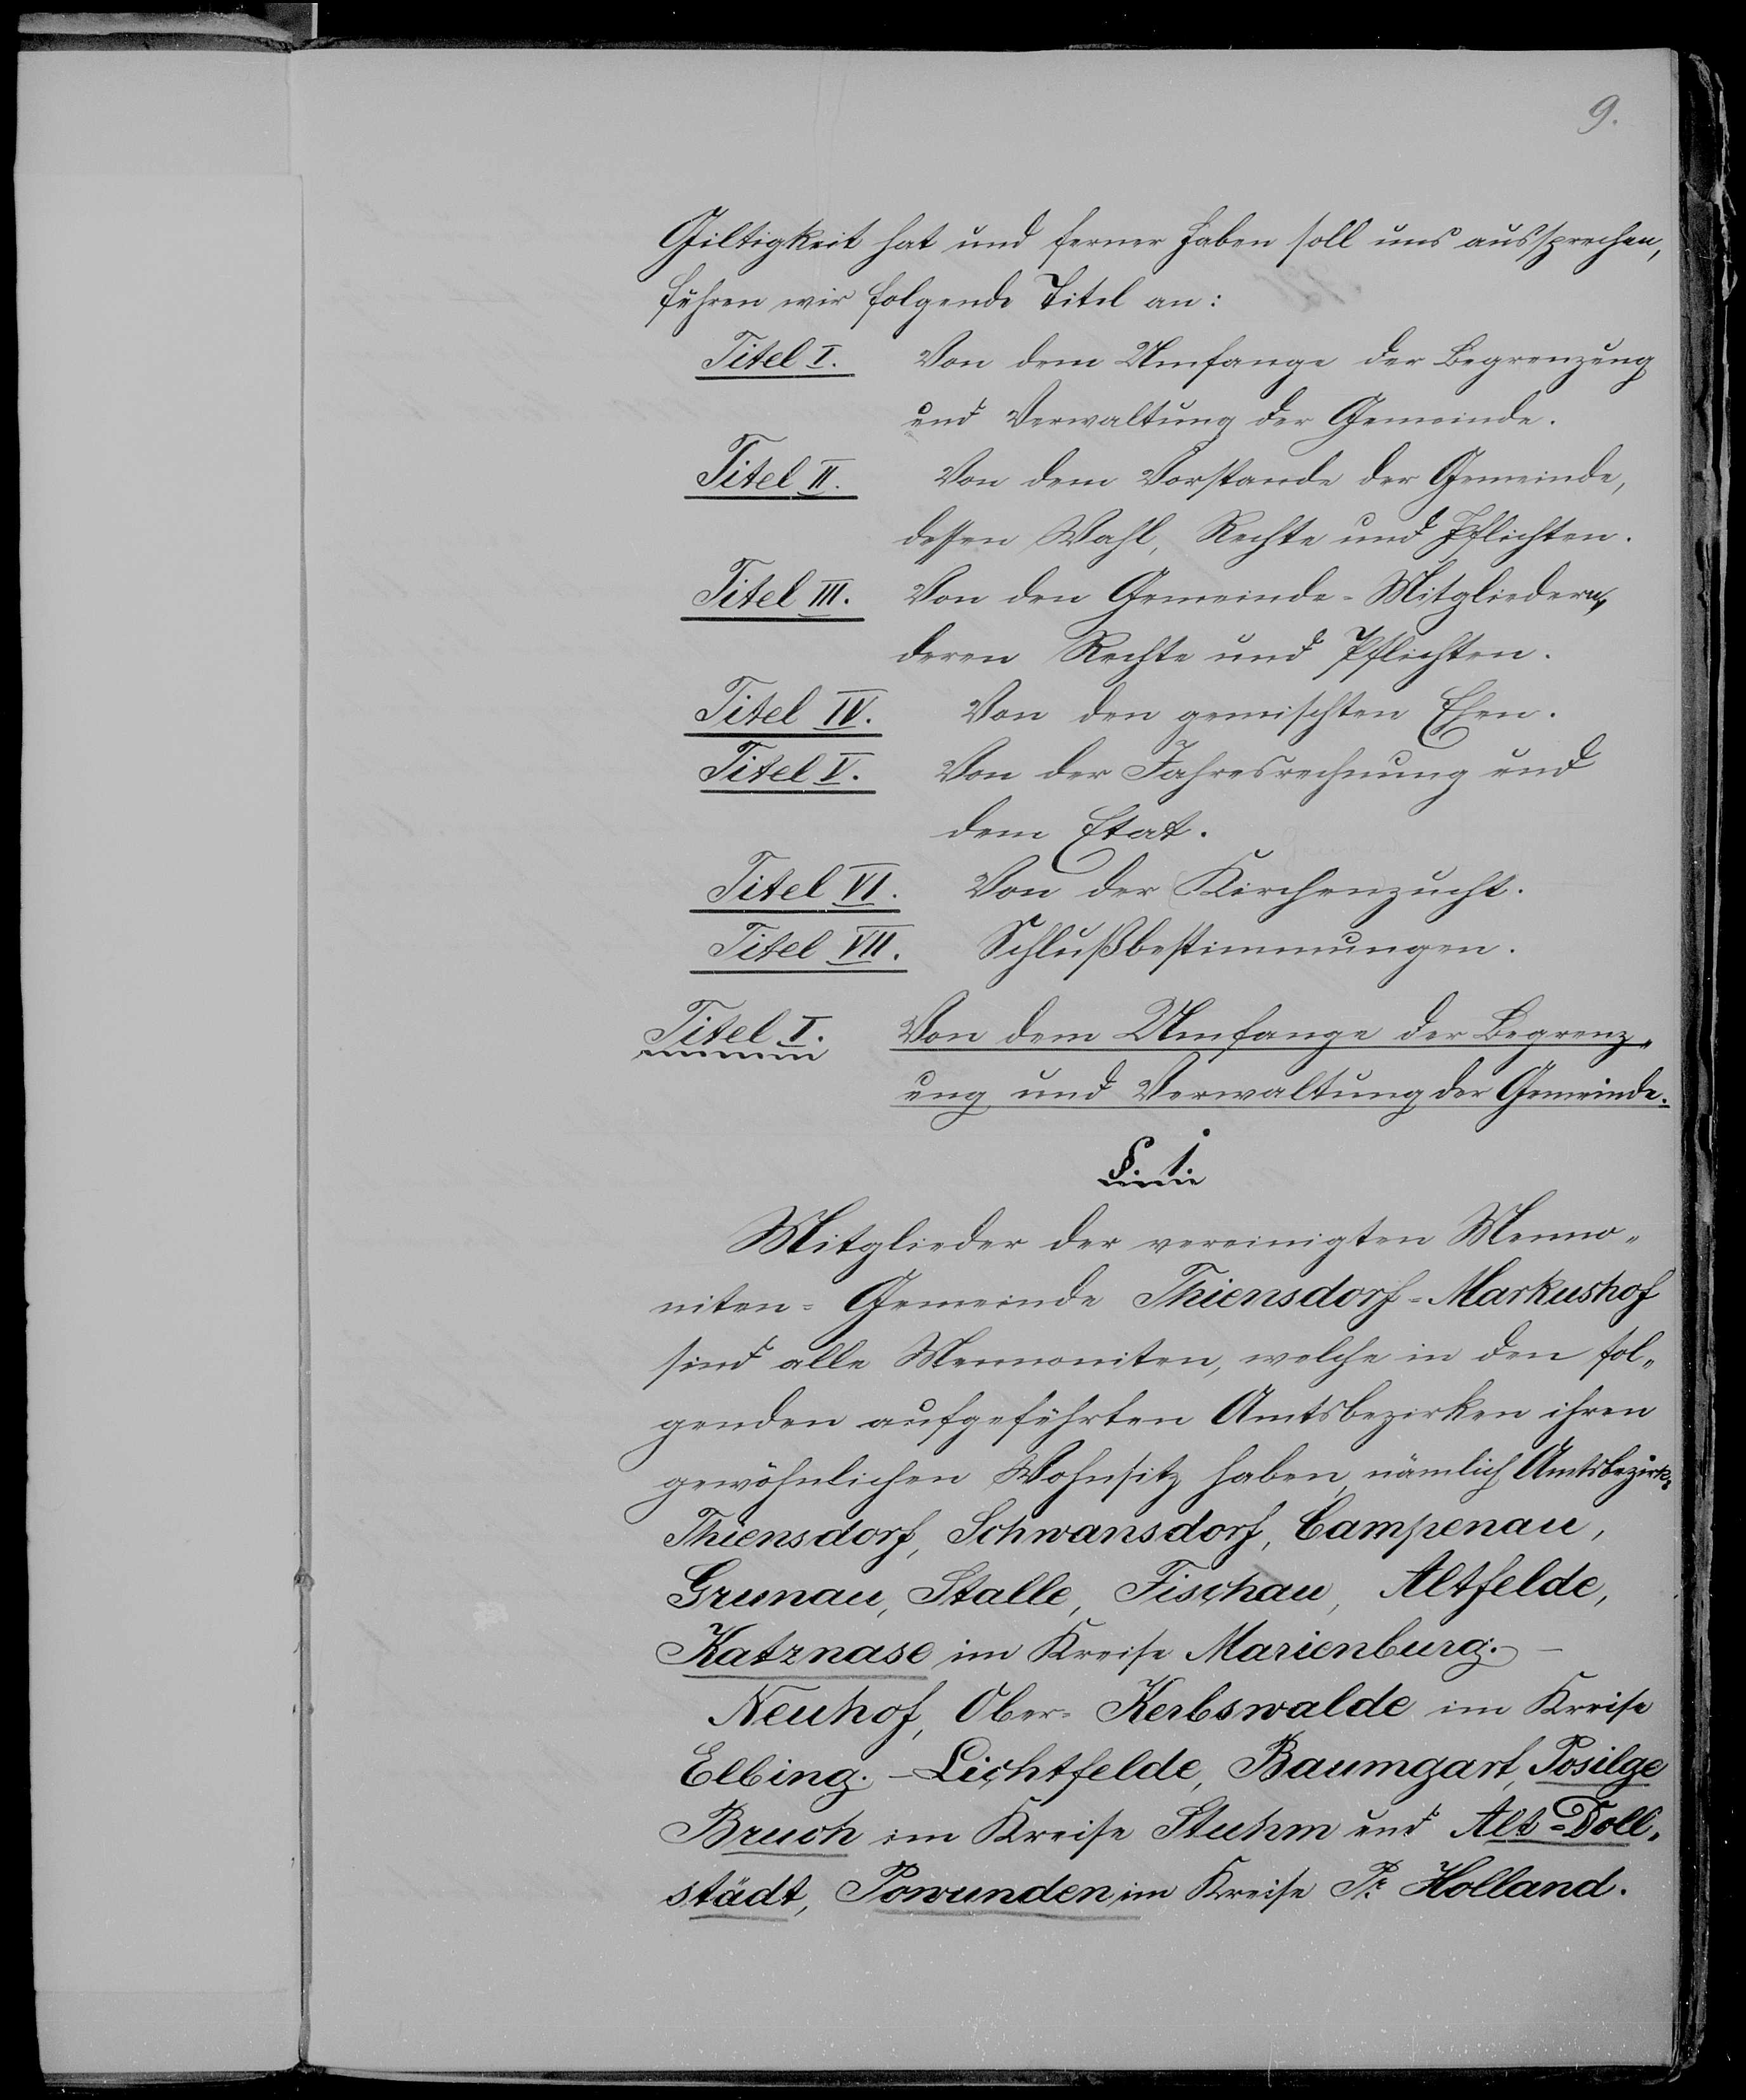 9.
Giltigkeit hat und ferner haben soll uns aussprechen,
führen wir folgende Titel an:
Titel I. Von dem Umfange der Begrenzung
und Verwaltung der Gemeinde.
Titel II. Von dem Vorstande der Gemeinde,
dessen Wahl, Rechte und Pflichten.
Titel III. Von den Gemeinde-Mitgliedern,
deren Rechte und Pflichten.
Titel IV. Von den gemischten Ehen.
Titel V. Von der Jahresrechnung und
dem Etat.
Titel VI. Von der Kirchenzucht.
Titel VII. Schlußbestimmungen.
Titel I. Von dem Umfange der Begrenz„
ung und Verwaltung der Gemeinde.
§. 1.
Mitglieder der vereinigten Menno„
niten-Gemeinde Thiensdorf-Markushof
sind alle Mennoniten, welche in den fol„
genden aufgeführten Amtsbezirken ihren
gewöhnlichen Wohnsitz haben, nämlich Amtsbezirk:
Thiensdorf, Schwansdorf, Campenau,
Grunau, Stalle, Fischau, Altfelde,
Katznase im Kreise Marienburg. —
Neuhof, Ober-Kerbswalde im Kreise
Elbing. – Lichtfelde, Baumgart, Posilge
Bruch im Kreise Stuhm und Alt-Doll„
städt, Powunden im Kreise Pr. Holland.